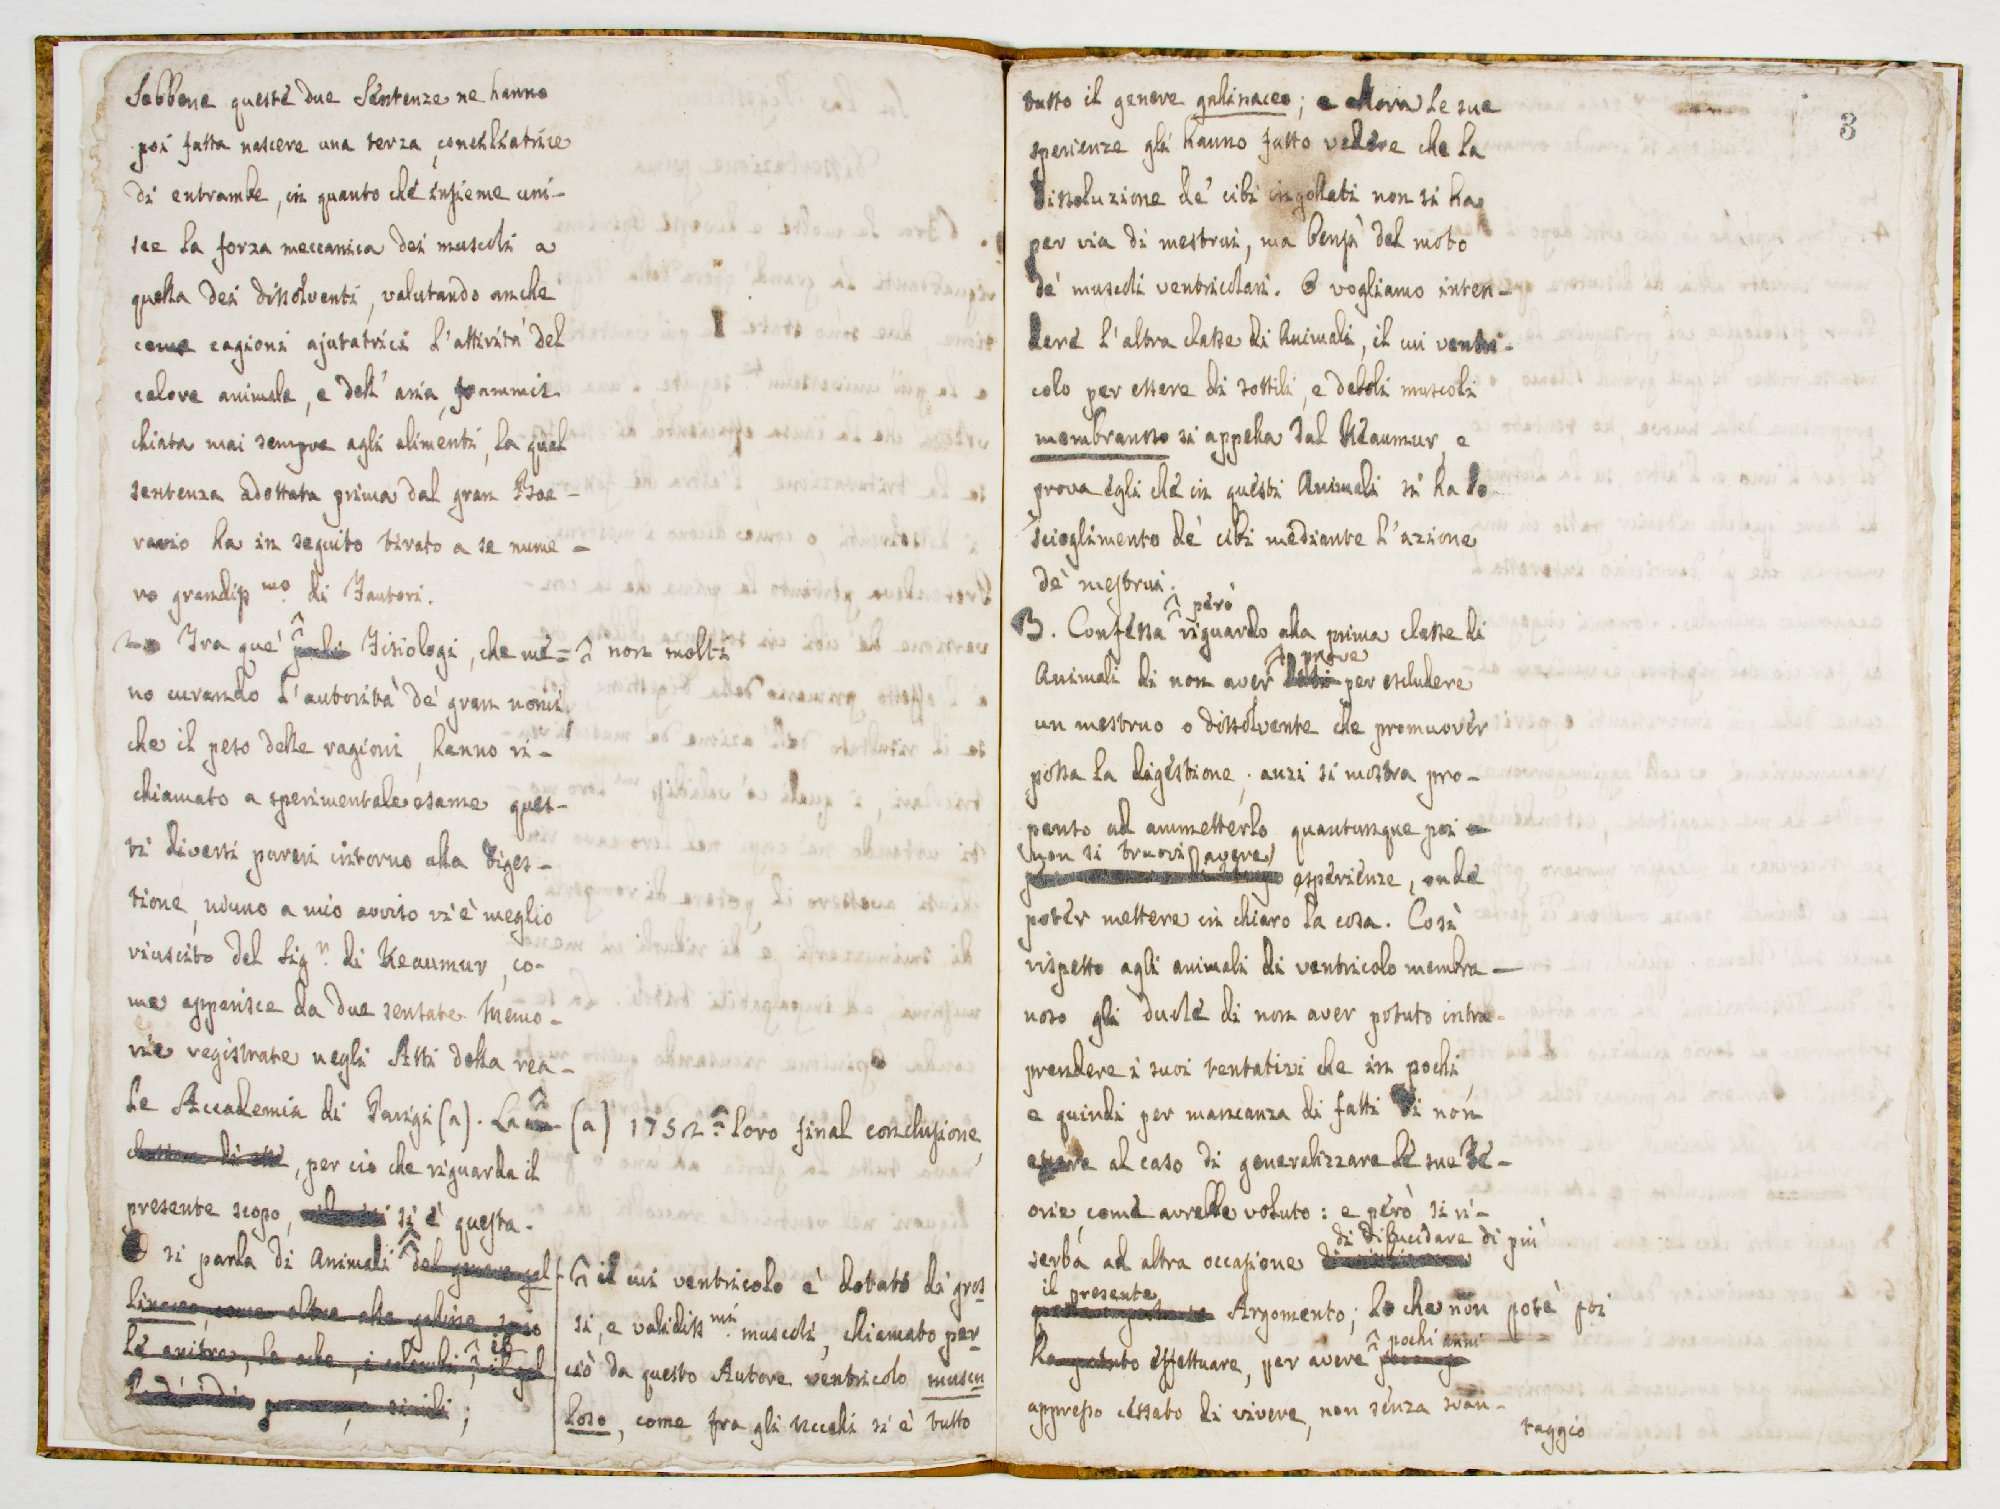 Sebbene queste due Sentenze ne hanno
poi fatta nascere una terza conciliatrice
di entrambe, in quanto che insieme uni-
sce la forza meccanica dei muscoli a
quella dei dissolventi, valutando anche
come cagioni ajutatrici l'attività del
calore animale, e dell'aria frammis
chiata mai sempre agli alimenti, la qual
sentenza adottata prima dal gran Boe-
ravio ha in seguito tirato a se nume-
ro grandiss.mo di Fautori.
2. Fra que' pochi Fisiologi, che me= non molti
no curando l'autorità de' gran nomi,
che il peso delle ragioni, hanno ri-
chiamato a sperimentale esame ques-
ti diversi pareri intorno alla diges-
tione, niuno a mio avviso vi è meglio
riuscito del Sig.r di Reaumur, co-
me apparisce da due sensate Memo-
rie registrate negli Atti della rea-
le Accademia di Parigi (a). La (a) 1752 loro final conclusione,
per ciò che riguarda il
presente scopo, si è questa.
O si parla di Animali del genere gal
linaceo, come oltre alle galine sono
le anitre, le oche, i colombi, il gal
lo d'india, simili;
il cui ventricolo è dotato di gros
si, e validiss.mi muscoli, chiamato per
ciò da questo Autore ventricolo muscu
loso, come fra gli uccelli si è tutto
3
tutto il genere galinaceo; e allora le sue
sperienze gli hanno fatto vedere che la
dissoluzione de' cibi ingollati non si ha
per via di mestrui, ma bensì del moto
de' muscoli ventricolari. O vogliamo inten-
dere l'altra classe di Animali, il cui ventri-
colo per essere di sottili, e deboli muscoli
membranoso si appella dal Reaumur, e
prova egli che in questi Animali si ha lo
scioglimento de' cibi mediante l'azione
de' mestrui.
però
3. Confessa riguardo alla prima classe di
prove
Animali di non aver per escludere
un mestruo o dissolvente che promuover
possa la digestione, anzi si mostra pro-
penso ad ammetterlo quantunque poi
non si truovi avere
esperienze, onde
poter mettere in chiaro la cosa. Così
rispetto agli animali di ventricolo membra-
noso gli duole di non aver potuto intra-
prendere i suoi tentativi che in pochi,
e quindi per mancanza di fatti di non
essere al caso di generalizzare le sue Te-
orie, come avrebbe voluto: e però si ri-
di dilucidare di più
serba ad altra occasione
il presente
Argomento; lo che non potè poi
pochi anni
ha potuto effettuare, per avere
appresso cessato di vivere, non senza svan-
taggio